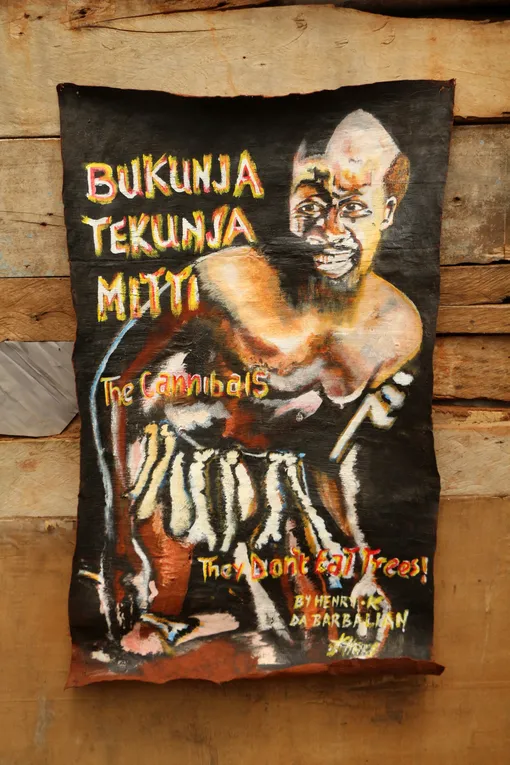 BUKUNJA
TEKUNJA
MITTI
The Cannibals
They Don't Eat Trees!
BY HENRY·K
DA BARBALIAN